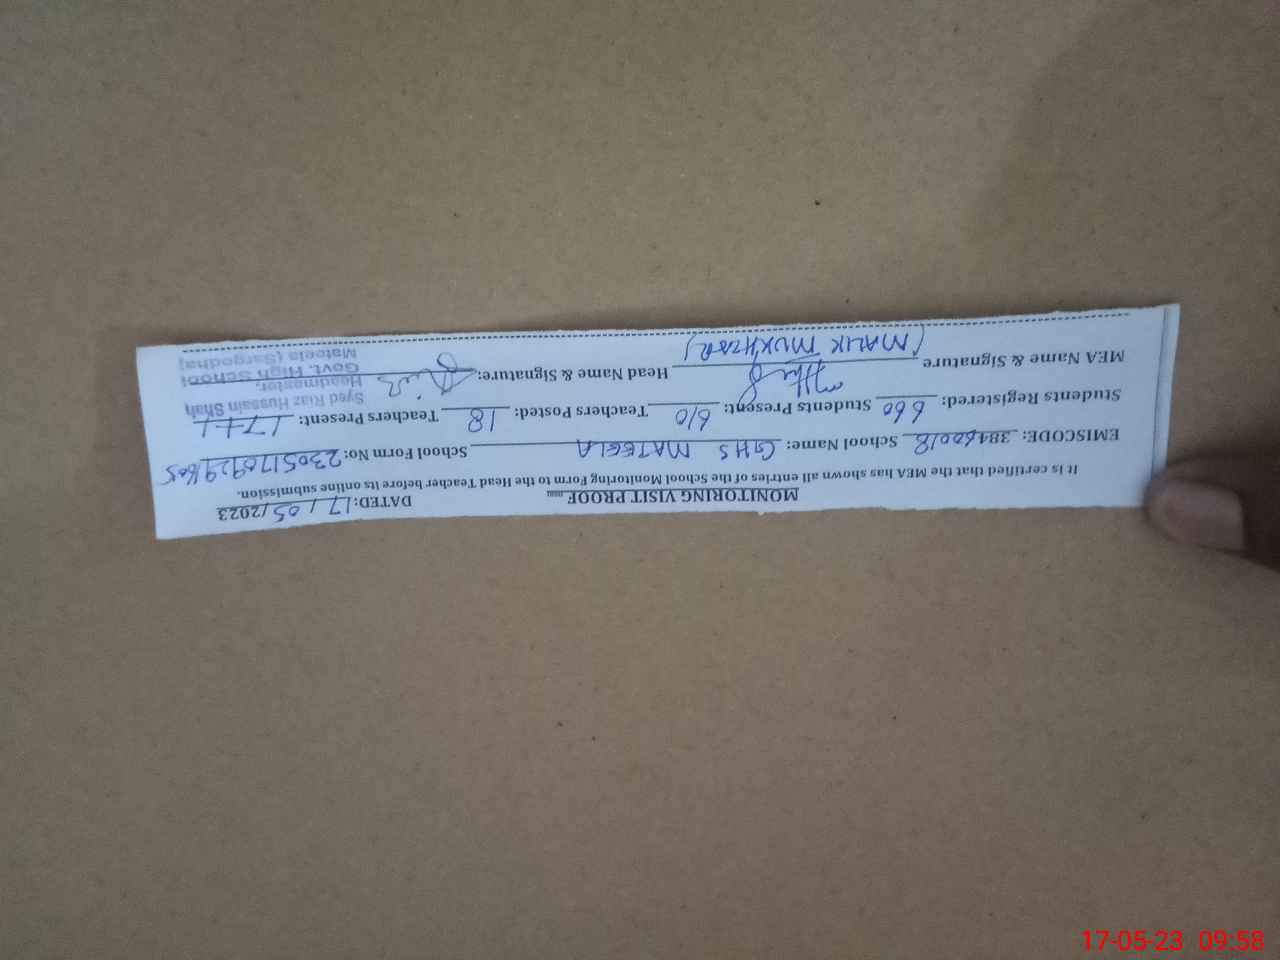 MONITORING VISIT PROOF DATED: 17/05/2023
It is certified that the MEA has shown all entries of the School Monitoring Form to the Head Teacher before its online submission.
EMISCODE: 38460018 School Name: GHS MATEELA School Form No: 23051709291605
Students Registered: 660 Students Present: 610 Teachers Posted: 18 Teachers Present: 17+1
MEA Name & Signature (MALIK MUKHTAR) Head Name & Signature:
Syed Riaz Hussain Shah
Headmaster.
Govt. High School
Mateela (Sargodha)
17-05-23 09:58